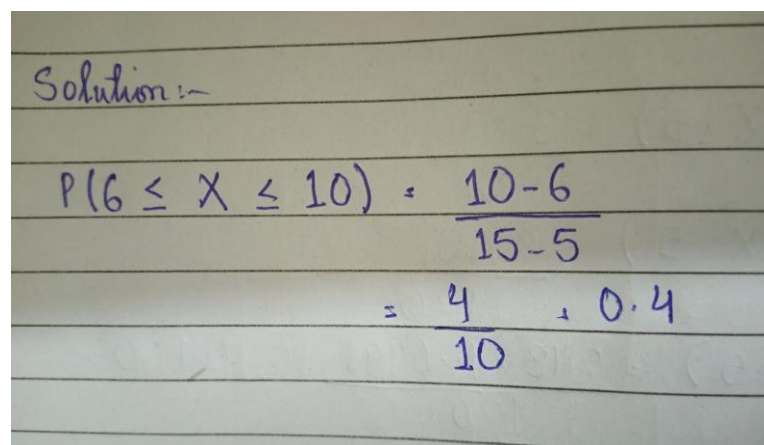 Solution:-
P(6 ≤ X ≤ 10) = 10-6
15-5
= 4 = 0.4
10